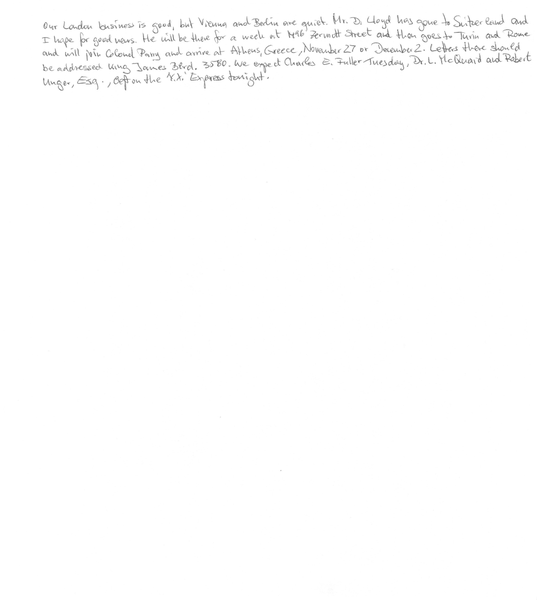 Our London business is good, but Vienna and Berlin are quiet. Mr. D. Lloyd has gone to Switzerland and
I hope for good news. He will be there for a week at 1496 Zermott Street and then goes to Turin and Rome
and will join Colonel Parry and arrive at Athens, Greece, November 27 or December 2. Letters there should
be addressed King James Blvd. 3580. We expect Charles E. Fuller Tuesday, Dr. L. McQuaid and Robert
Unger, Esq., left on the 'Y.X.' Express tonight.